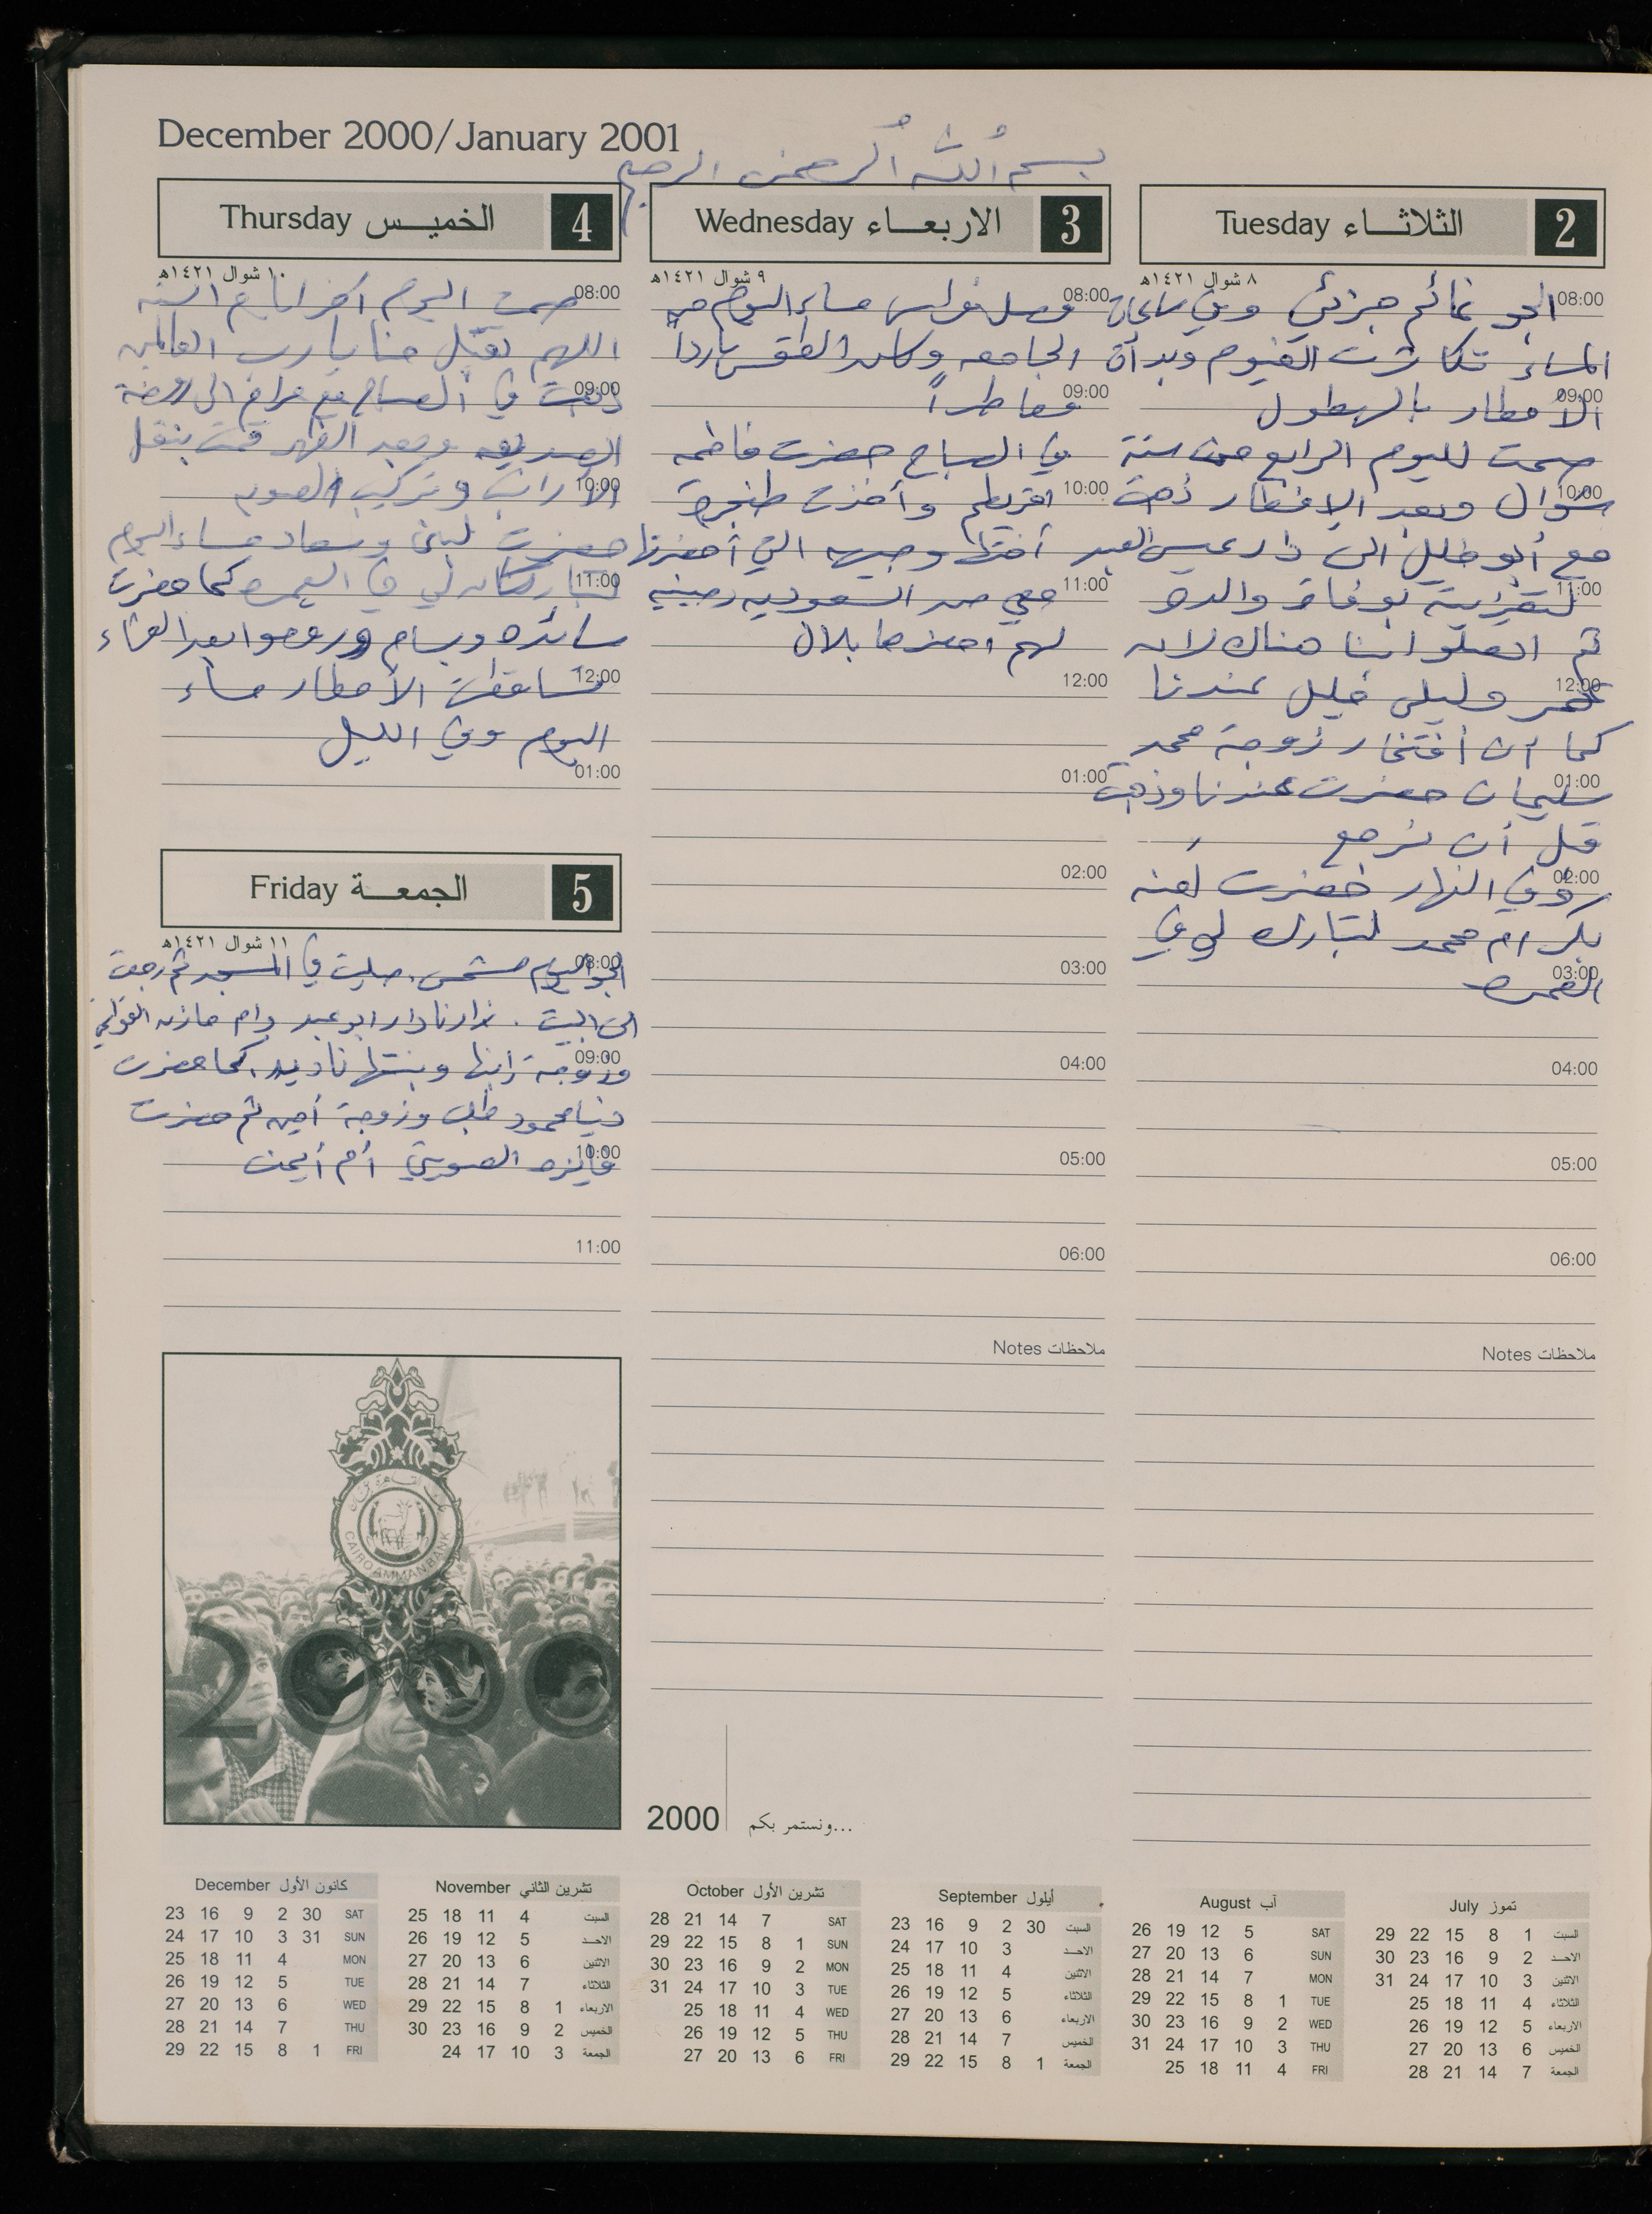 December 2000/January 2001
بسم الله الرحمن الرحيم
Tuesday الثلاثاء 2
٨ شوال ١٤٢١هـ
08:00 الجو غائم جزئي وفي ساعات
المساء تكاثرت الغيوم وبدأت
09:00 الأمطار بالهطول
صمت لليوم الرابع من ستة
10:00 شوال وبعد الإفطار ذهبت
مع أبو خليل الى دار عيسى العبد
11:00 لتعزيته بوفاة والده
ثم اتصلوا بنا هناك لانه
12:00 عمر وليلى خليل عندنا
كما أن افتخار زوجة محمد
01:00 سليمان حضرت عندنا وذهبت
قبل أن نرجع
02:00 وفي النهار حضرت
بكر ام محمد لتبارك لي في
03:00 العمره
04:00
05:00
06:00
Notes ملاحظات
Wednesday الاربعاء 3
٩ شوال ١٤٢١هـ
08:00 وصل فراس مساء اليوم من
الجامعه وكان الطقس باردا
09:00 وماطراً
في الصباح حضرت فاطمة
10:00 وأخذت طنجرة
أختها وجيهه التي أحضرتها
11:00 معي من السعوديه
لهم احضرها بلال
12:00
01:00
02:00
03:00
04:00
05:00
06:00
Notes ملاحظات
Thursday الخميس 4
١٠ شوال ١٤٢١هـ
08:00 صمت اليوم آخر أيام الستة
اللهم تقبل منا يا رب العالمين
09:00 ذهبت في الصباح مع مرام الى روضة
وبعد الظهر قمت بنقل
10:00 الأثاث وتركيب
حضرت لبنى وسعاد مساء اليوم
11:00 لتباركان لي في العمره كما حضرت
سائده وبسام وروحوا بعد العشاء
12:00 تساقطت الأمطار مساء
اليوم وفي الليل
01:00
Friday الجمعة 5
١١ شوال ١٤٢١هـ
08:00 الجو اليوم مشمس. صليت في المسجد ثم رجعت
الى البيت. زارنا دار ابو عبد وام مازن
09:00 وزوجة إبنها وبنتها ناديه. كما حضرت
دنيا محمود طلب وزوجة أمين ثم حضرت
10:00 فايزه أم أيمن
11:00
CAIRO AMMAN BANK
2000
2000 ...ونستمر بكم
July تموز
السبت 1 8 15 22 29
الاحد 2 9 16 23 30
الاثنين 3 10 17 24 31
الثلاثاء 4 11 18 25
الاربعاء 5 12 19 26
الخميس 6 13 20 27
الجمعة 7 14 21 28
August آب
SAT 5 12 19 26
SUN 6 13 20 27
MON 7 14 21 28
TUE 1 8 15 22 29
WED 2 9 16 23 30
THU 3 10 17 24 31
FRI 4 11 18 25
September أيلول
السبت 30 2 9 16 23
الاحد 3 10 17 24
الاثنين 4 11 18 25
الثلاثاء 5 12 19 26
الاربعاء 6 13 20 27
الخميس 7 14 21 28
الجمعة 1 8 15 22 29
October تشرين الأول
SAT 7 14 21 28
SUN 1 8 15 22 29
MON 2 9 16 23 30
TUE 3 10 17 24 31
WED 4 11 18 25
THU 5 12 19 26
FRI 6 13 20 27
November تشرين الثاني
السبت 4 11 18 25
الاحد 5 12 19 26
الاثنين 6 13 20 27
الثلاثاء 7 14 21 28
الاربعاء 1 8 15 22 29
الخميس 2 9 16 23 30
الجمعة 3 10 17 24
December كانون الأول
SAT 30 2 9 16 23
SUN 31 3 10 17 24
MON 4 11 18 25
TUE 5 12 19 26
WED 6 13 20 27
THU 7 14 21 28
FRI 1 8 15 22 29